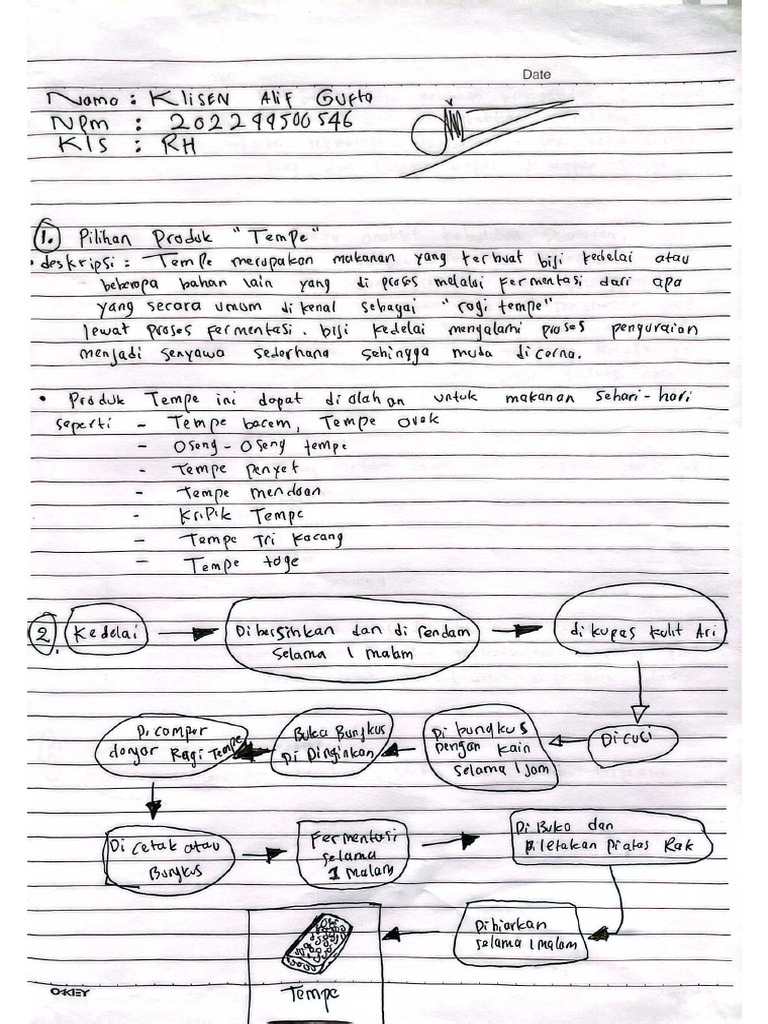 Date
Nama : Klisen Alif Gufta
Npm : 202299500546
Kls : RH
1. Pilihan Produk "Tempe"
• deskripsi : Tempe merupakan makanan yang terbuat biji kedelai atau
beberapa bahan lain yang di proses melalui fermentasi dari apa
yang secara umum di kenal sebagai "ragi tempe"
lewat proses fermentasi. biji kedelai mengalami proses penguraian
menjadi senyawa sederhana sehingga muda dicerna.
• Produk Tempe ini dapat di olahan untuk makanan sehari-hari
seperti - Tempe bacem, Tempe orek
- Oseng-Oseng tempe
- Tempe penyet
- Tempe mendoan
- Kripik Tempe
- Tempe Tri kacang
- Tempe toge
2. Kedelai
Di bersihkan dan di rendam
selama 1 malam
di kupas kulit Ari
Di cuci
Di bungkus
Dengan kain
selama 1 jam
Buka Bungkus
Di Dinginkan
Di campur
dengar Ragi Tempe
Di cetak atau
Bungkus
Fermentasi
selama
1 malam
Di Buka dan
Di letakan Diatas Rak
Dibiarkan
selama 1 malam
Tempe
OKEY